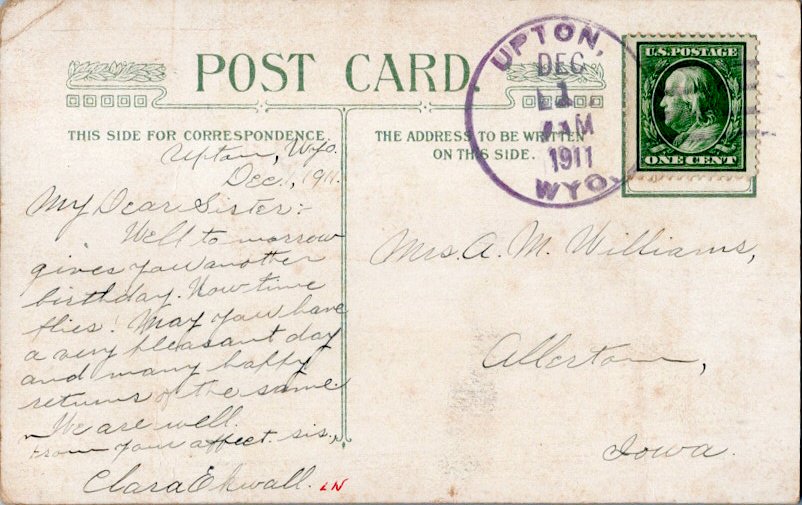 POST CARD.
THIS SIDE FOR CORRESPONDENCE.
THE ADDRESS TO BE WRITTEN
ON THIS SIDE.
UPTON,
DEC
1
AM
1911
WYO.
U.S. POSTAGE
ONE CENT
Upton, Wyo.
Dec. 1, 1911.
My Dear Sister:-
Well to morrow
gives you another
birthday. How time
flies! May you have
a very pleasant day
and many happy
returns of the same
We are well.
From your affect. sis,
Clara Ekwall.
LN
Mrs. A. M. Williams,
Allerton,
Iowa.